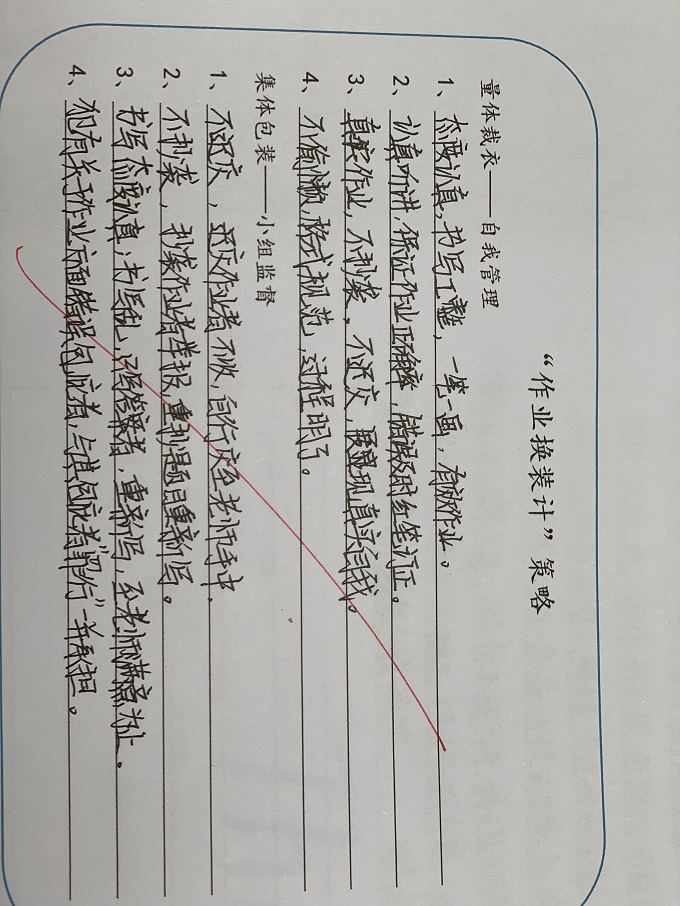 “作业换装计”策略
量体裁衣——自我管理
1、态度认真，书写工整，一笔一画，有效作业。
2、认真听讲，保证作业正确率，错误及时红笔订正。
3、真实作业，不抄袭，不迟交，要显现真实自我。
4、不偷懒，格式规范，过程明了。
集体包装——小组监督
1、不迟交，迟交作业者不收，自行交至老师手中。
2、不抄袭，抄袭作业者举报，重抄题目重新写。
3、书写态度认真；书写乱，，重新写，至老师满意为止。
4、犯有关于作业方面错误包庇者，与其包庇者“罪行”一并承担。